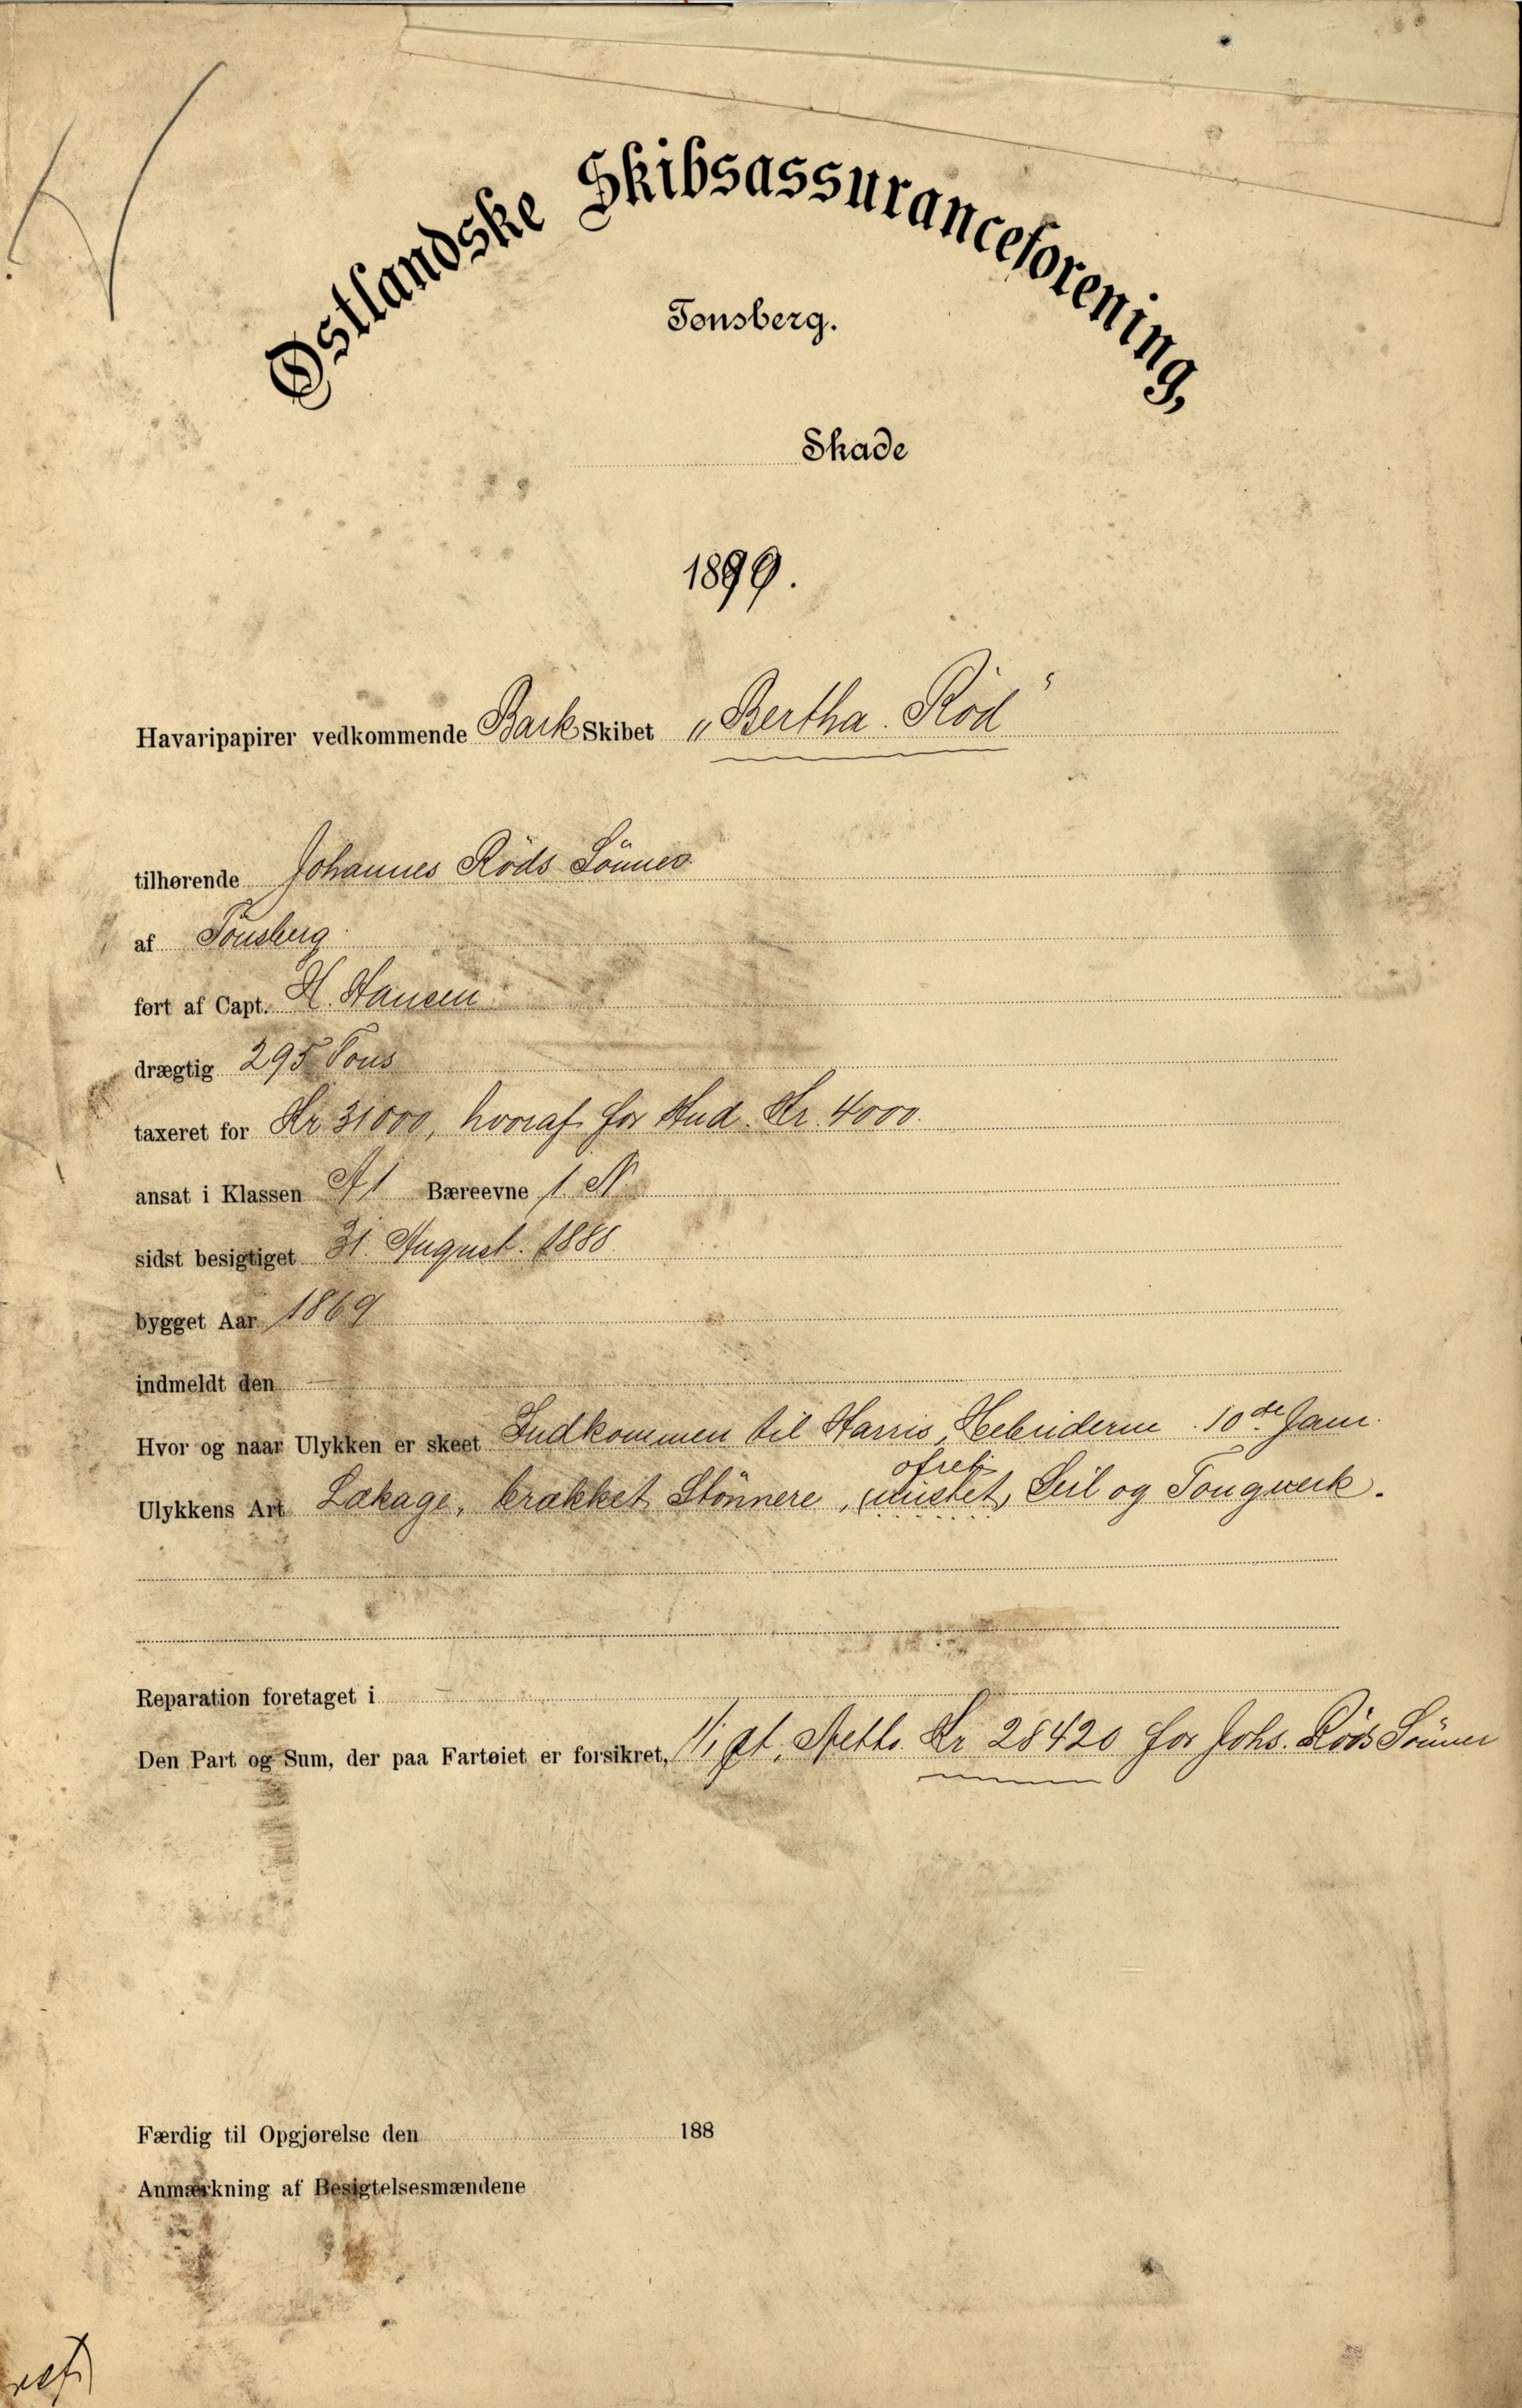 Østlandske Skibsassuranceforening,
Tønsberg.
Skade
1899.
Havaripapirer vedkommende Bark Skibet „Bertha Röd"
tilhørende Johannes Röds Sönner
af Tönsberg
ført af Capt. H. Hansen
drægtig 295 Tons
taxeret for Kr 31000, hvoraf for Hud Kr. 4000.
ansat i Klassen A1 Bæreevne 1. N
sidst besigtiget 31. August. 1888
bygget Aar 1869
indmeldt den —
Hvor og naar Ulykken er skeet Indkommen til Harris, Hebriderne. 10de Janr.
ofret
Ulykkens Art Lækage, brækket Stönnere, (mistet) Seil og Tougverk.
Reparation foretaget i —
Den Part og Sum, der paa Fartøiet er forsikret, 1/1 pt. Netto Kr 28420 for Johs. Röds Sönner
Færdig til Opgjørelse den 188
Anmærkning af Besigtelsesmændene